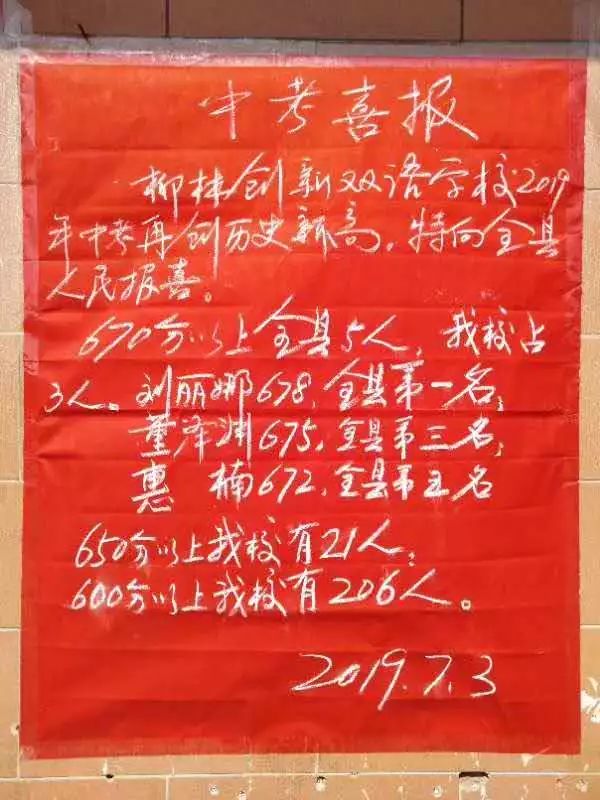 中考喜报
柳林创新双语学校2019
年中考再创历史新高,特向全县
人民报喜。
670分以上全县5人,我校占
3人。刘丽娜678,全县第一名;
董泽渊675,全县第三名;
惠 楠672,全县第五名
650分以上我校有21人;
600分以上我校有206人。
2019.7.3